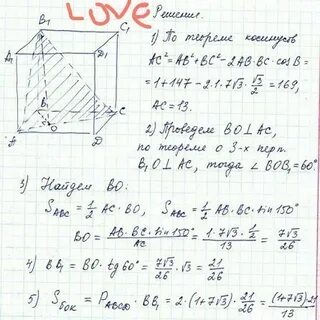 LOVE
Решение.
B₁ C₁
A₁ D₁
B C
O
A D
1) По теореме косинусов
AC² = AB² + BC² - 2AB·BC·cos B =
= 1 + 147 - 2·1·7√3·√3/2 = 169,
AC = 13.
2) Проведем BO ⊥ AC,
по теореме о 3-х перп.
B₁O ⊥ AC, тогда ∠BOB₁ = 60°
3) Найдем BO:
S_ABC = 1/2 AC·BO, S_ABC = 1/2 AB·BC·sin 150°
BO = AB·BC·sin 150°/AC = 1·7√3·1/2/13 = 7√3/26
4) BB₁ = BO·tg 60° = 7√3/26·√3 = 21/26
5) S_бок = P_ABCD·BB₁ = 2·(1+7√3)·21/26 = (1+7√3)21/13